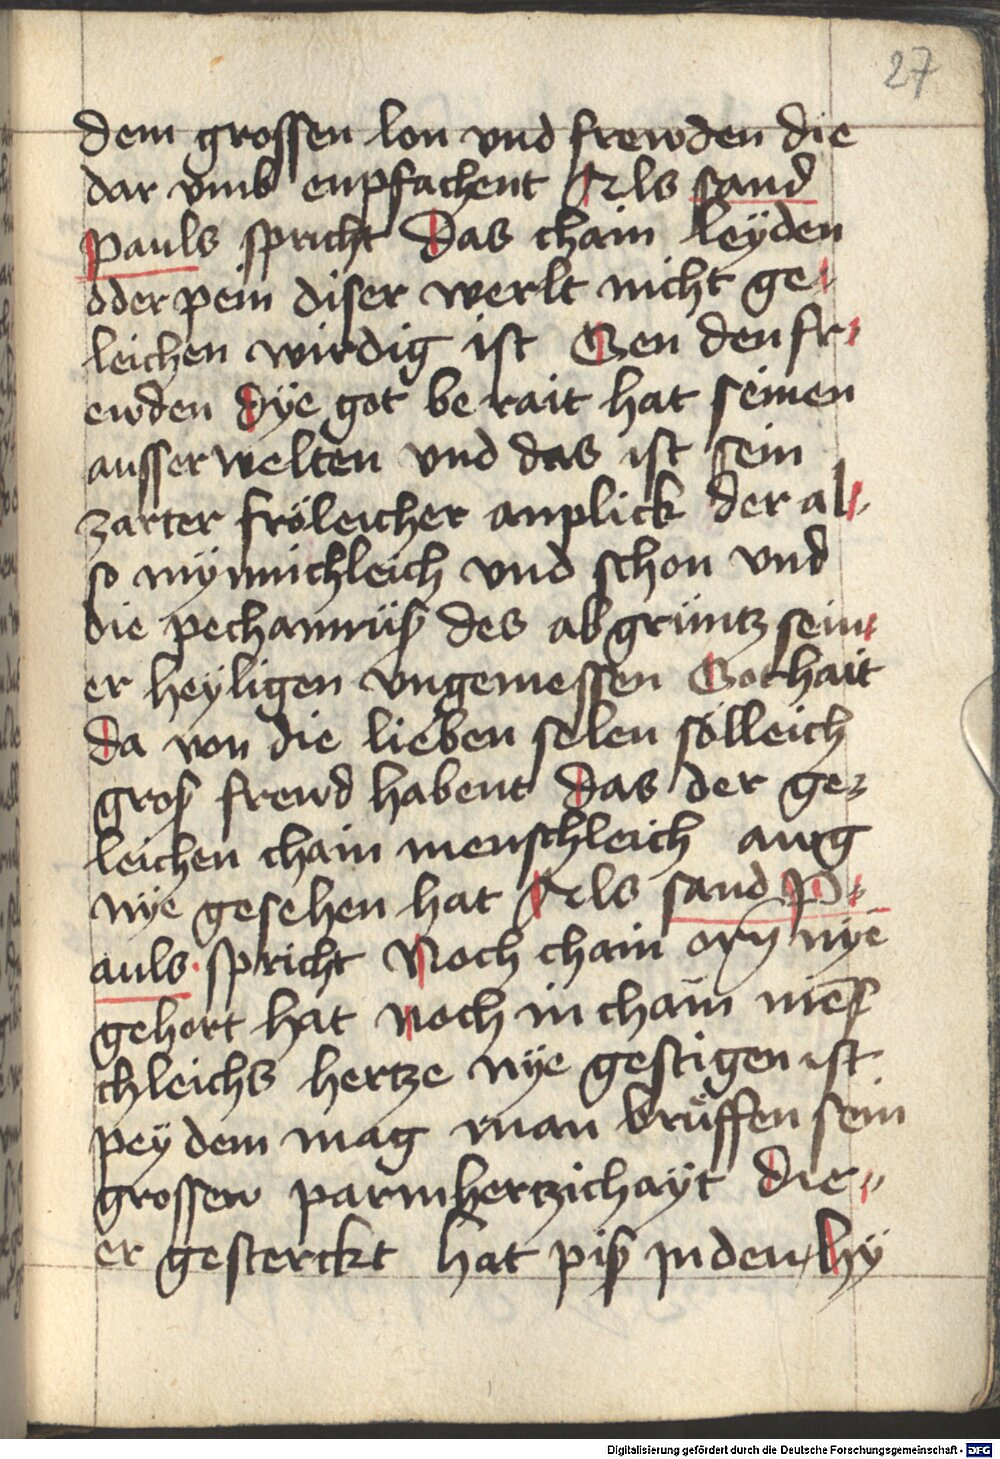 27
dem grossen lon vnd frewden die
dar vmb enpfachent Als sand
Pauls spricht Das chain leÿden
oder pein diser werlt nicht ge-
leichen wirdig ist Gen den fr-
ewden Dÿe got be rait hat seinen
ausser welten vnd das ist sein
zarter fröleicher anplick der al-
so mÿnnichleich vnd schon vnd
die pechannüß des abgrüntz sein-
er heÿligen vngemessen Gothait
Da von die lieben selen sölleich
groß frewd habent Das der ge-
leichen chain menschleich awg
nÿe gesehen hat Als sand P-
auls spricht Noch chain orn nÿe
gehort hat Noch in chain mēs
chleichs hertze nÿe gestigen ist
peÿ dem mag man brüffen sein
grossew parmhertzichaÿt Die-
er gesterckt hat piß in den hÿ
Digitalisierung gefördert durch die Deutsche Forschungsgemeinschaft - DFG